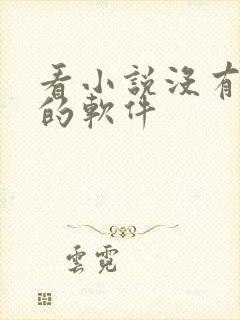 看小說沒有
的軟件
雲霓